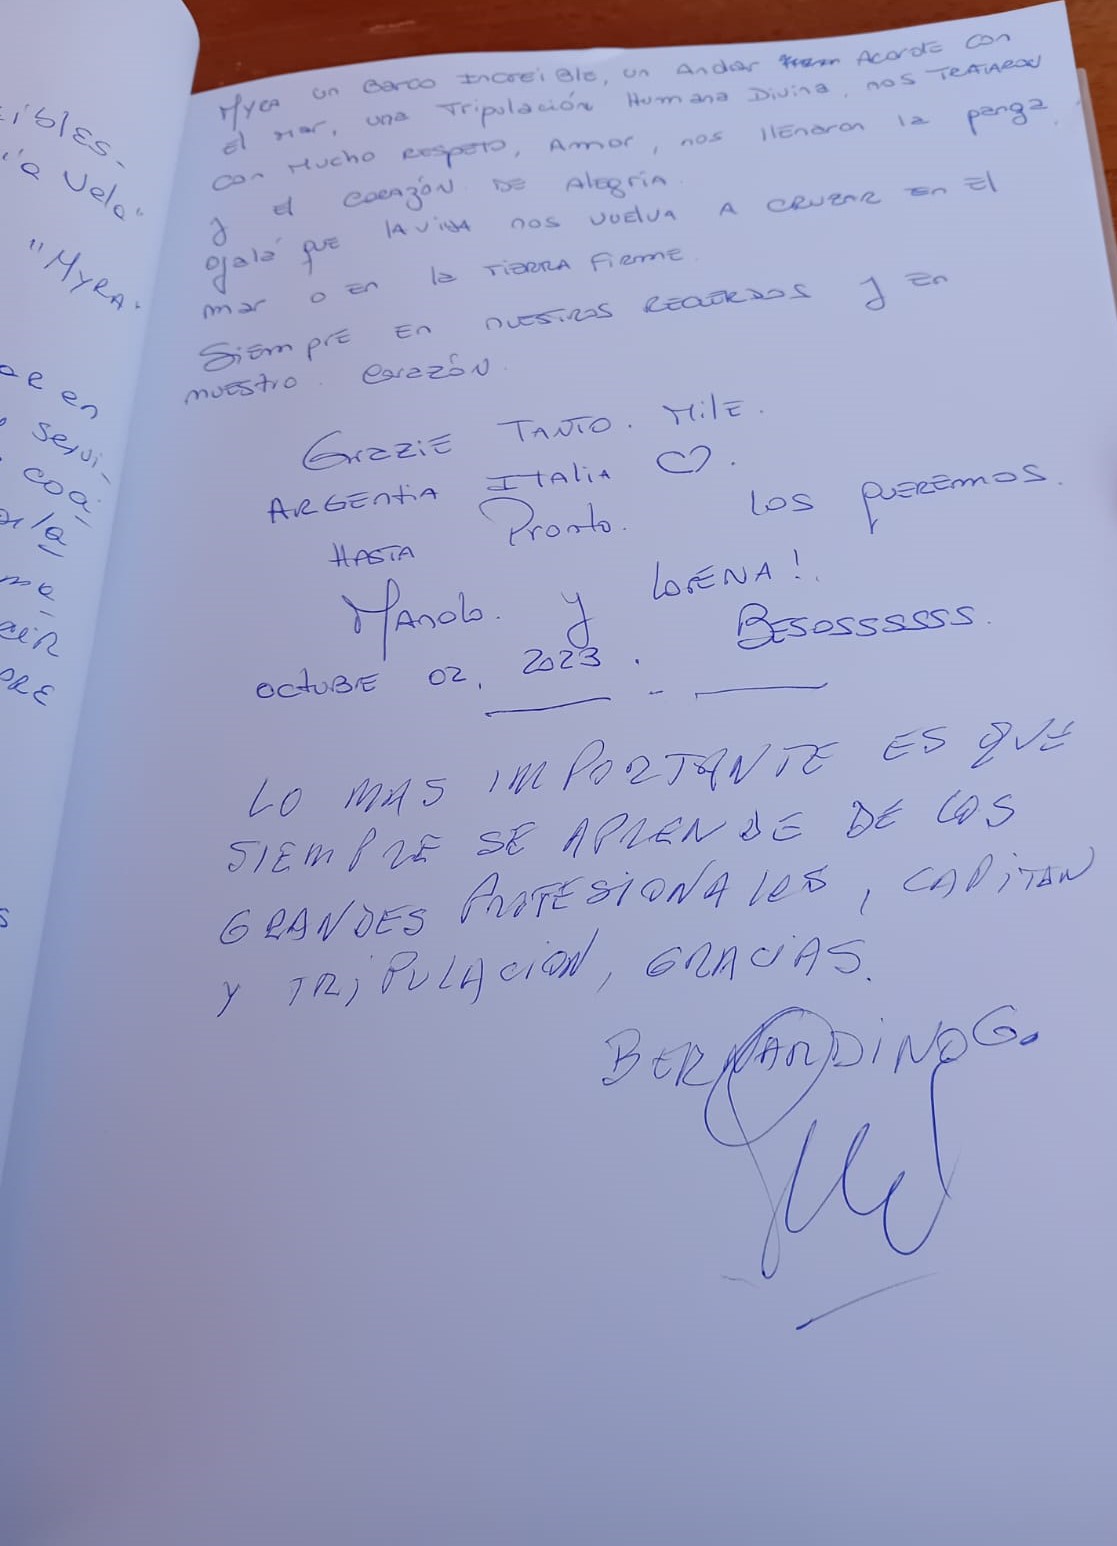 ibles-
a Vela"
"MYRA.
en
servi-
coa-
ME
PRE
MYRA un Barco Increible, un Andar Acorde con
El mar, una Tripulación Humana Divina, nos TRATARON
con Mucho RESPETO, Amor, nos llenaron la panza
y el CORAZÓN DE Alegría.
Ojalá que LA VIDA nos vuelva A CRUZAR En El
mar o en la TIERRA FIRME.
Siempre En nuestros RECUERDOS y En
nuestro corazón.
GRAZZIE TANTO. MilE.
ARGENtiA ITALIA ♡.
HASTA Pronto. los QUEREMOS.
Manolo. y LORENA!.
OCTUBIE 02, 2023. BESOSSSSSS.
LO MAS IMPORTANTE ES QUE
SIEMPRE SE APRENDE DE LOS
GRANDES PROFESIONALES, CAPITAN
Y TRIPULACION, GRACIAS.
BERNARDINO G.